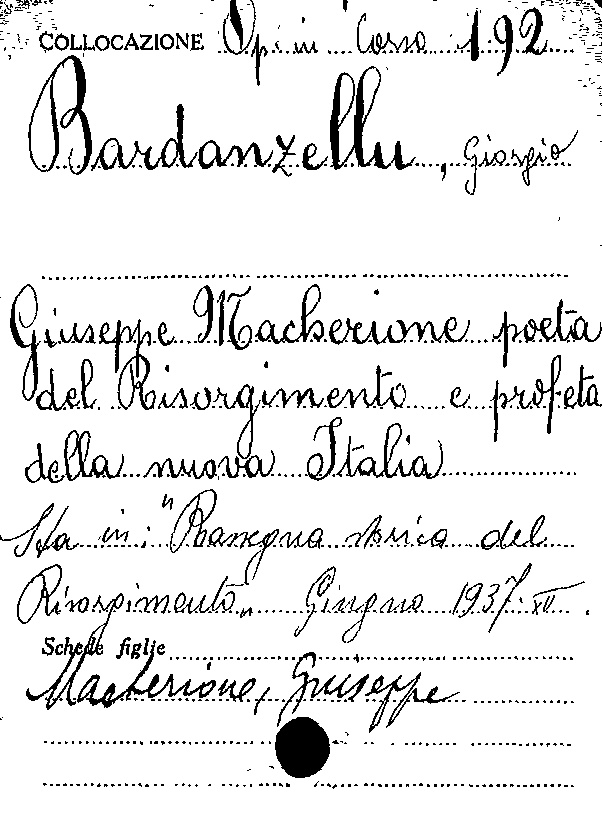 COLLOCAZIONE Op. in Corso 192
Bardanzellu, Giorgio
Giuseppe Macherione poeta
del Risorgimento e profeta
della nuova Italia
Sta in: "Rassegna storica del
Risorgimento„ Giugno 1937. XV.
Schede figlie
Macherione, Giuseppe